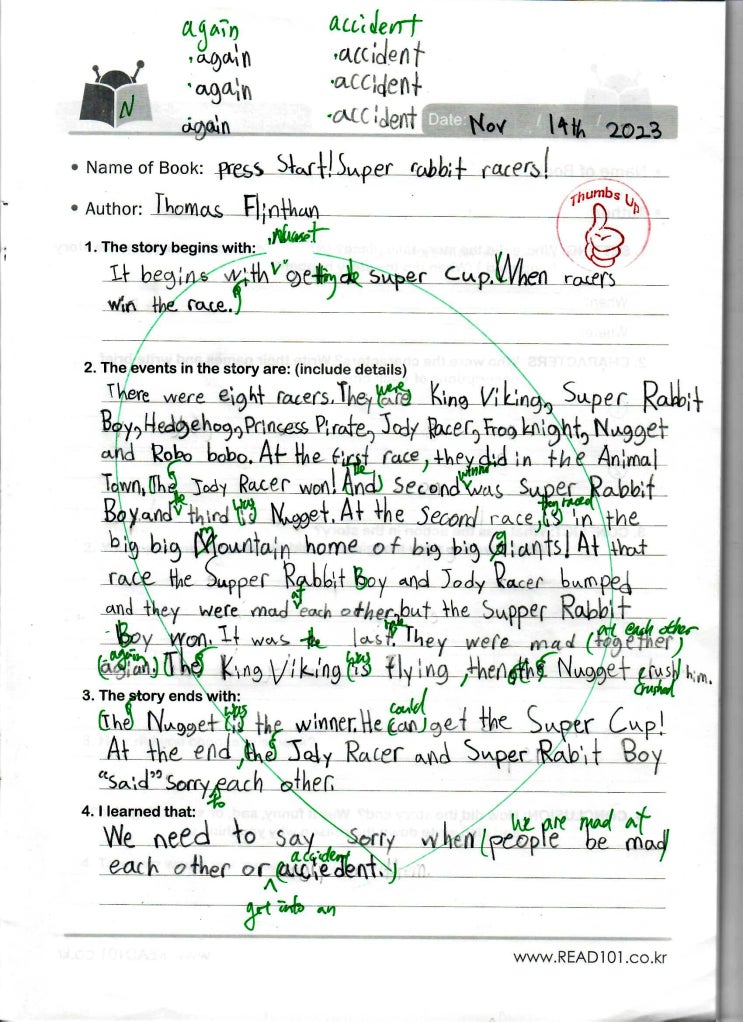 again accident
· again · accident
· again · accident
again · accident
N Date: Nov / 14th / 2023
• Name of Book: press Start! Super rabbit racers!
• Author: Thomas Flinthan
Thumbs Up
1. The story begins with: Nugget
It begins with getting de super cup. When racers
win the race.
2. The events in the story are: (include details)
were
There were eight racers. They (are) King Viking, Super Rabbit
Boy, Hedgehog, Princess Pirate, Jody Racer, Frog knight, Nugget
and Robo bobo. At the first race, they did in the Animal
the winner
Town. The Jody Racer won! And second was Super Rabbit
the was they raced
Boy and third (is) Nugget. At the second race, (is) in the
big big Mountain home of big big Giants! At that
race the Supper Rabbit Boy and Jody Racer bumped
at
and they were mad each other, but the Supper Rabbit
at each other
Boy won. It was the last. They were mad (together)
again was
(agian.) The King Viking (is) flying, then the Nugget crush him.
crushed
3. The story ends with:
was could
(The) Nugget (is) the winner. He (can) get the Super Cup!
At the end, the Jody Racer and Super Rabit Boy
"said" sorry each other.
to
4. I learned that:
we are mad at
We need to say sorry when (people be mad)
accident
each other or (acciedent.)
get into an
www.READ101.co.kr